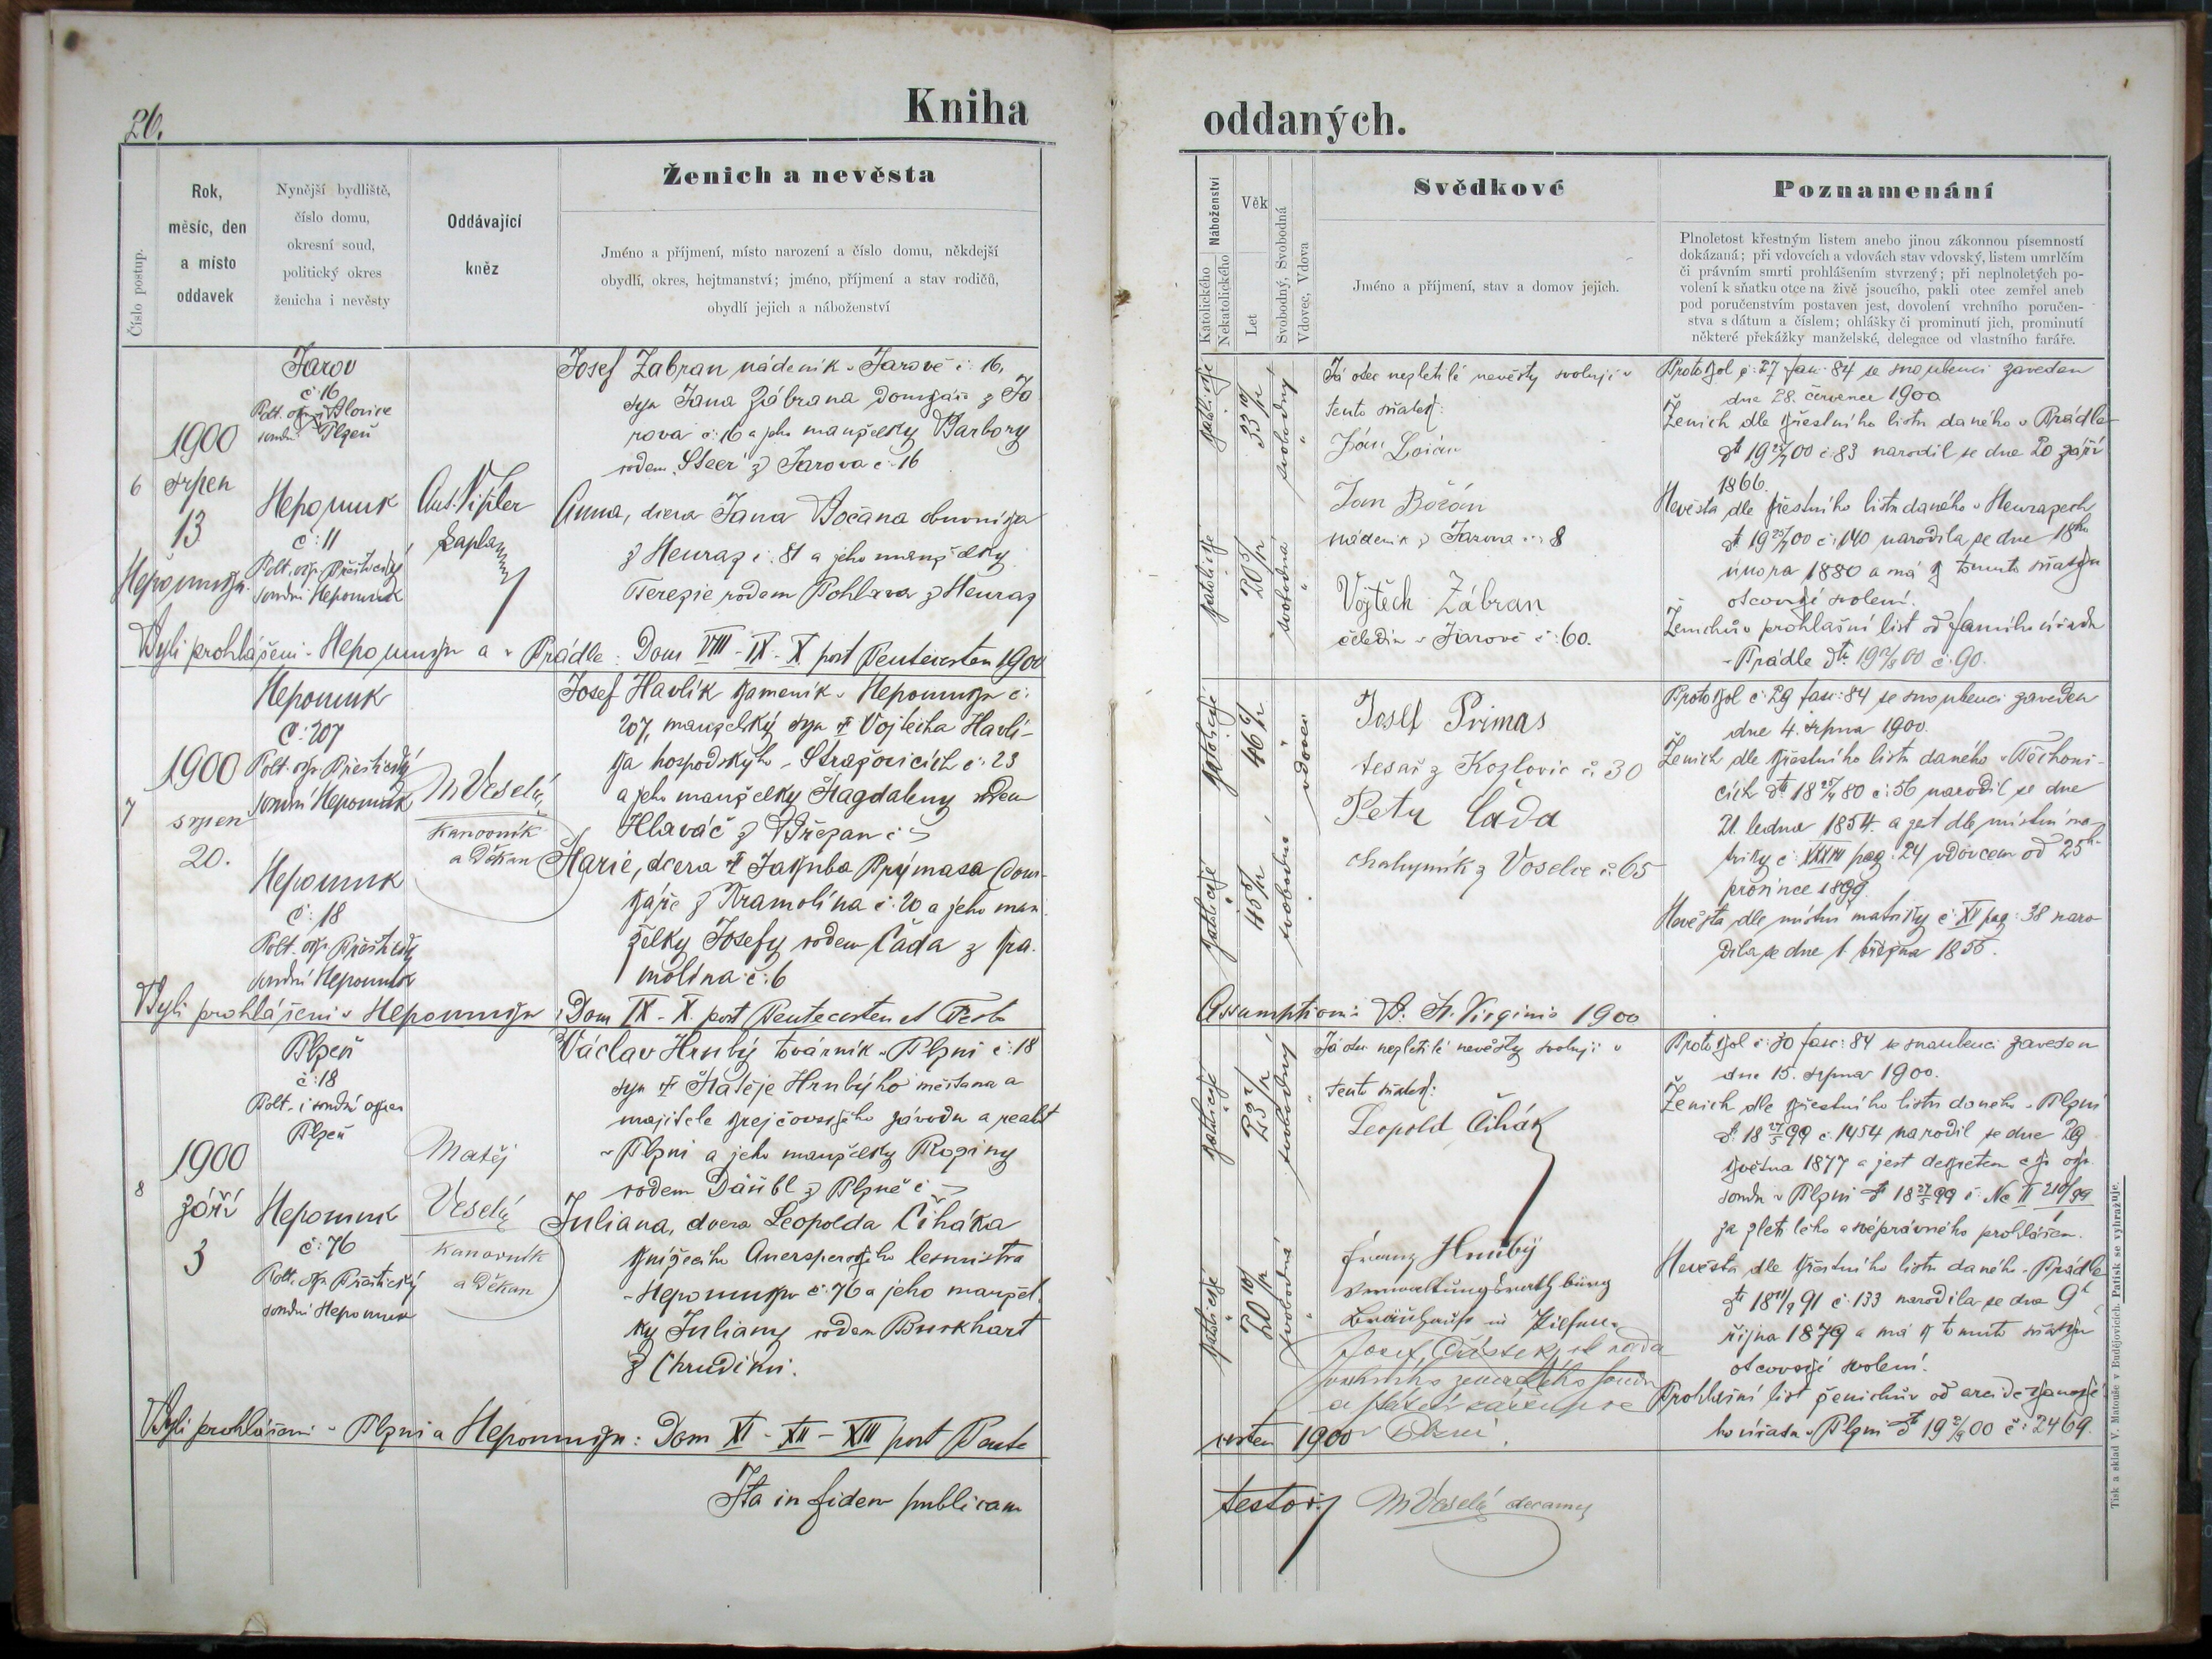 26.
Kniha
oddaných.
Číslo postup.
Rok,
měsíc, den
a místo
oddavek
Nynější bydliště,
číslo domu,
okresní soud,
politický okres
ženicha i nevěsty
Oddávající
kněz
Ženich a nevěsta
Jméno a příjmení, místo narození a číslo domu, někdejší
obydlí, okres, hejtmanství; jméno, příjmení a stav rodičů,
obydlí jejich a náboženství
Katolického
Nekatolického
Náboženství
Věk
Let
Svobodný, Svobodná
Vdovec, Vdova
Svědkové
Jméno a příjmení, stav a domov jejich.
Poznamenání
Plnoletost křestným listem anebo jinou zákonnou písemností
dokázaná; při vdovcích a vdovách stav vdovský, listem umrlčím
či právním smrti prohlášením stvrzený; při neplnoletých po-
volení k sňatku otce na živě jsoucího, pakli otec zemřel aneb
pod poručenstvím postaven jest, dovolení vrchního poručen-
stva s dátum a číslem; ohlášky či prominutí jich, prominutí
některé překážky manželské, delegace od vlastního faráře.
6
1900
srpen
13
Nepomuk
Jarov
č: 16
soudní Plzeň
Nepomuk
č: 11
Polt. okr. Přeštický
soudní Nepomuk
Ant.
kaplan
Josef Zabran nádeník v Jarově č: 16,
syn Jana Zábrana domkáře z Ja
rova č: 16 a jeho manželky Barbory
rodem Steer z Jarova č. 16
Anna, dcera Jana Bočana obuvníka
z Neuraz č: 81 a jeho manželky
Terezie rodem Pohlava z Neuraz
Byli prohlášeni v Nepomuku a v Prádle: Dom VIII - IX - X post Pentecosten 1900
katolické
33
svobodný
katolické
20
svobodná
Já otec nepletilé nevěsty svoluji v
tento sňatek:
Ján
Jan Božán
nádeník z Jarova č: 8
Vojtěch Zábran
čeledín v Jarově č: 60.
Protokol č: 27 fasc: 84 se snoubenci zaveden
dne 28. července 1900
Ženich dle křestního listu daného v Prádle
č: 83 narodil se dne 20 září
1866.
Nevěsta dle křestního listu daného v Neurazech
č: 140 narodila se dne 18ho
února 1880 a má k tomuto sňatku
otcovské svolení.
Ženichův prohlašní list od farního úřadu
v Prádle dto 19 2/8 00 č: 90.
7
1900
srpen
20.
Nepomuk
č: 207
Polt. okr. Přeštický
soudní Nepomuk
Nepomuk
č: 18
Polt. okr. Přeštický
soudní Nepomuk
M Veselý
Kanovník
a Děkan
Josef Havlík kameník v Nepomuku č:
207, manželský syn † Vojtěcha Havlí-
ka hospodského v Stražovicích č: 23
a jeho manželky Magdaleny rodem
Hlaváč z Březan č: –
Marie, dcera † Jakuba Prýmasa dom-
káře z Kramolína č: 20 a jeho man
želky Josefy rodem Čada z Kra.
molína č: 6
Byli prohlášeni v Nepomuku: Dom IX - X. post Pentecosten et Festo
Assumptioni B. M. Virginis 1900
katolické
46
vdovec
katolické
45
svobodná
Josef Primas
tesař z Kozlovic č. 30
Petr Čáda
chalupník z Voselce č: 65
Protokol č: 29 fasc: 84 se snoubenci zaveden
dne 4. srpna 1900.
Ženich dle křestního listu daného v Těchoni-
cích č: 56 narodil se dne
21. ledna 1854. a jest dle místní ma
triky č: XXXIV pag: 24 vdovcem od 25ho
prosince 1899.
Nevěsta dle místní matriky č: XV pag: 38 naro
dila se dne 1. března 1855.
8
1900
září
3
Plzeň
č: 18
Polt. i soudní okres
Plzeň
Nepomuk
č: 76
Polt. okr. Přeštický
soudní Nepomuk
Matěj
Veselý
Kanovník
a Děkan
Václav Hrubý továrník v Plzni č: 18
syn † Matěje Hrubýho měštana a
majitele krejčovského závodu a realit
v Plzni a jeho manželky Roziny
rodem Däubl z Plzně č: –
Juliana, dcera Leopolda Čiháka
knížecího Auersperského lesmistra
v Nepomuku č: 76 a jeho manžel
ky Juliany rodem Burkhart
z Chrudimi.
Byli prohlášeni v Plzni a Nepomuku: Dom XI - XII - XIII post Pente
costen 1900
katolické
23
svobodný
katolické
20
svobodná
Já otec nepletilé nevěsty svoluji v
tento sňatek:
Leopold Čihák
Franz Hrubý
in Pilsen.
Josef
v Plzni.
Protokol č: 30 fasc: 84 se snoubenci zaveden
dne 15. srpna 1900.
Ženich dle křestního listu daného v Plzni
dt. 18 99 č: 1454 narodil se dne 29
května 1877 a jest dekretem c. k. okr.
soudu v Plzni č: Nc II 210/99
za zletilého a svéprávného prohlášen.
Nevěsta dle křestního listu daného v Prádle
dt. 18 91 č: 133 narodila se dne 9ho
října 1879 a má k tomuto sňatku
otcovské svolení.
Prohlašní list ženichův od arciděkanské
ho úřadu v Plzni dt 19 2/9 00 č: 2469.
Ita in fidem publicam
testor
M Veselý decanus
Tisk a sklad V. Matouše v Budějovicích. Patisk se vyhražuje.